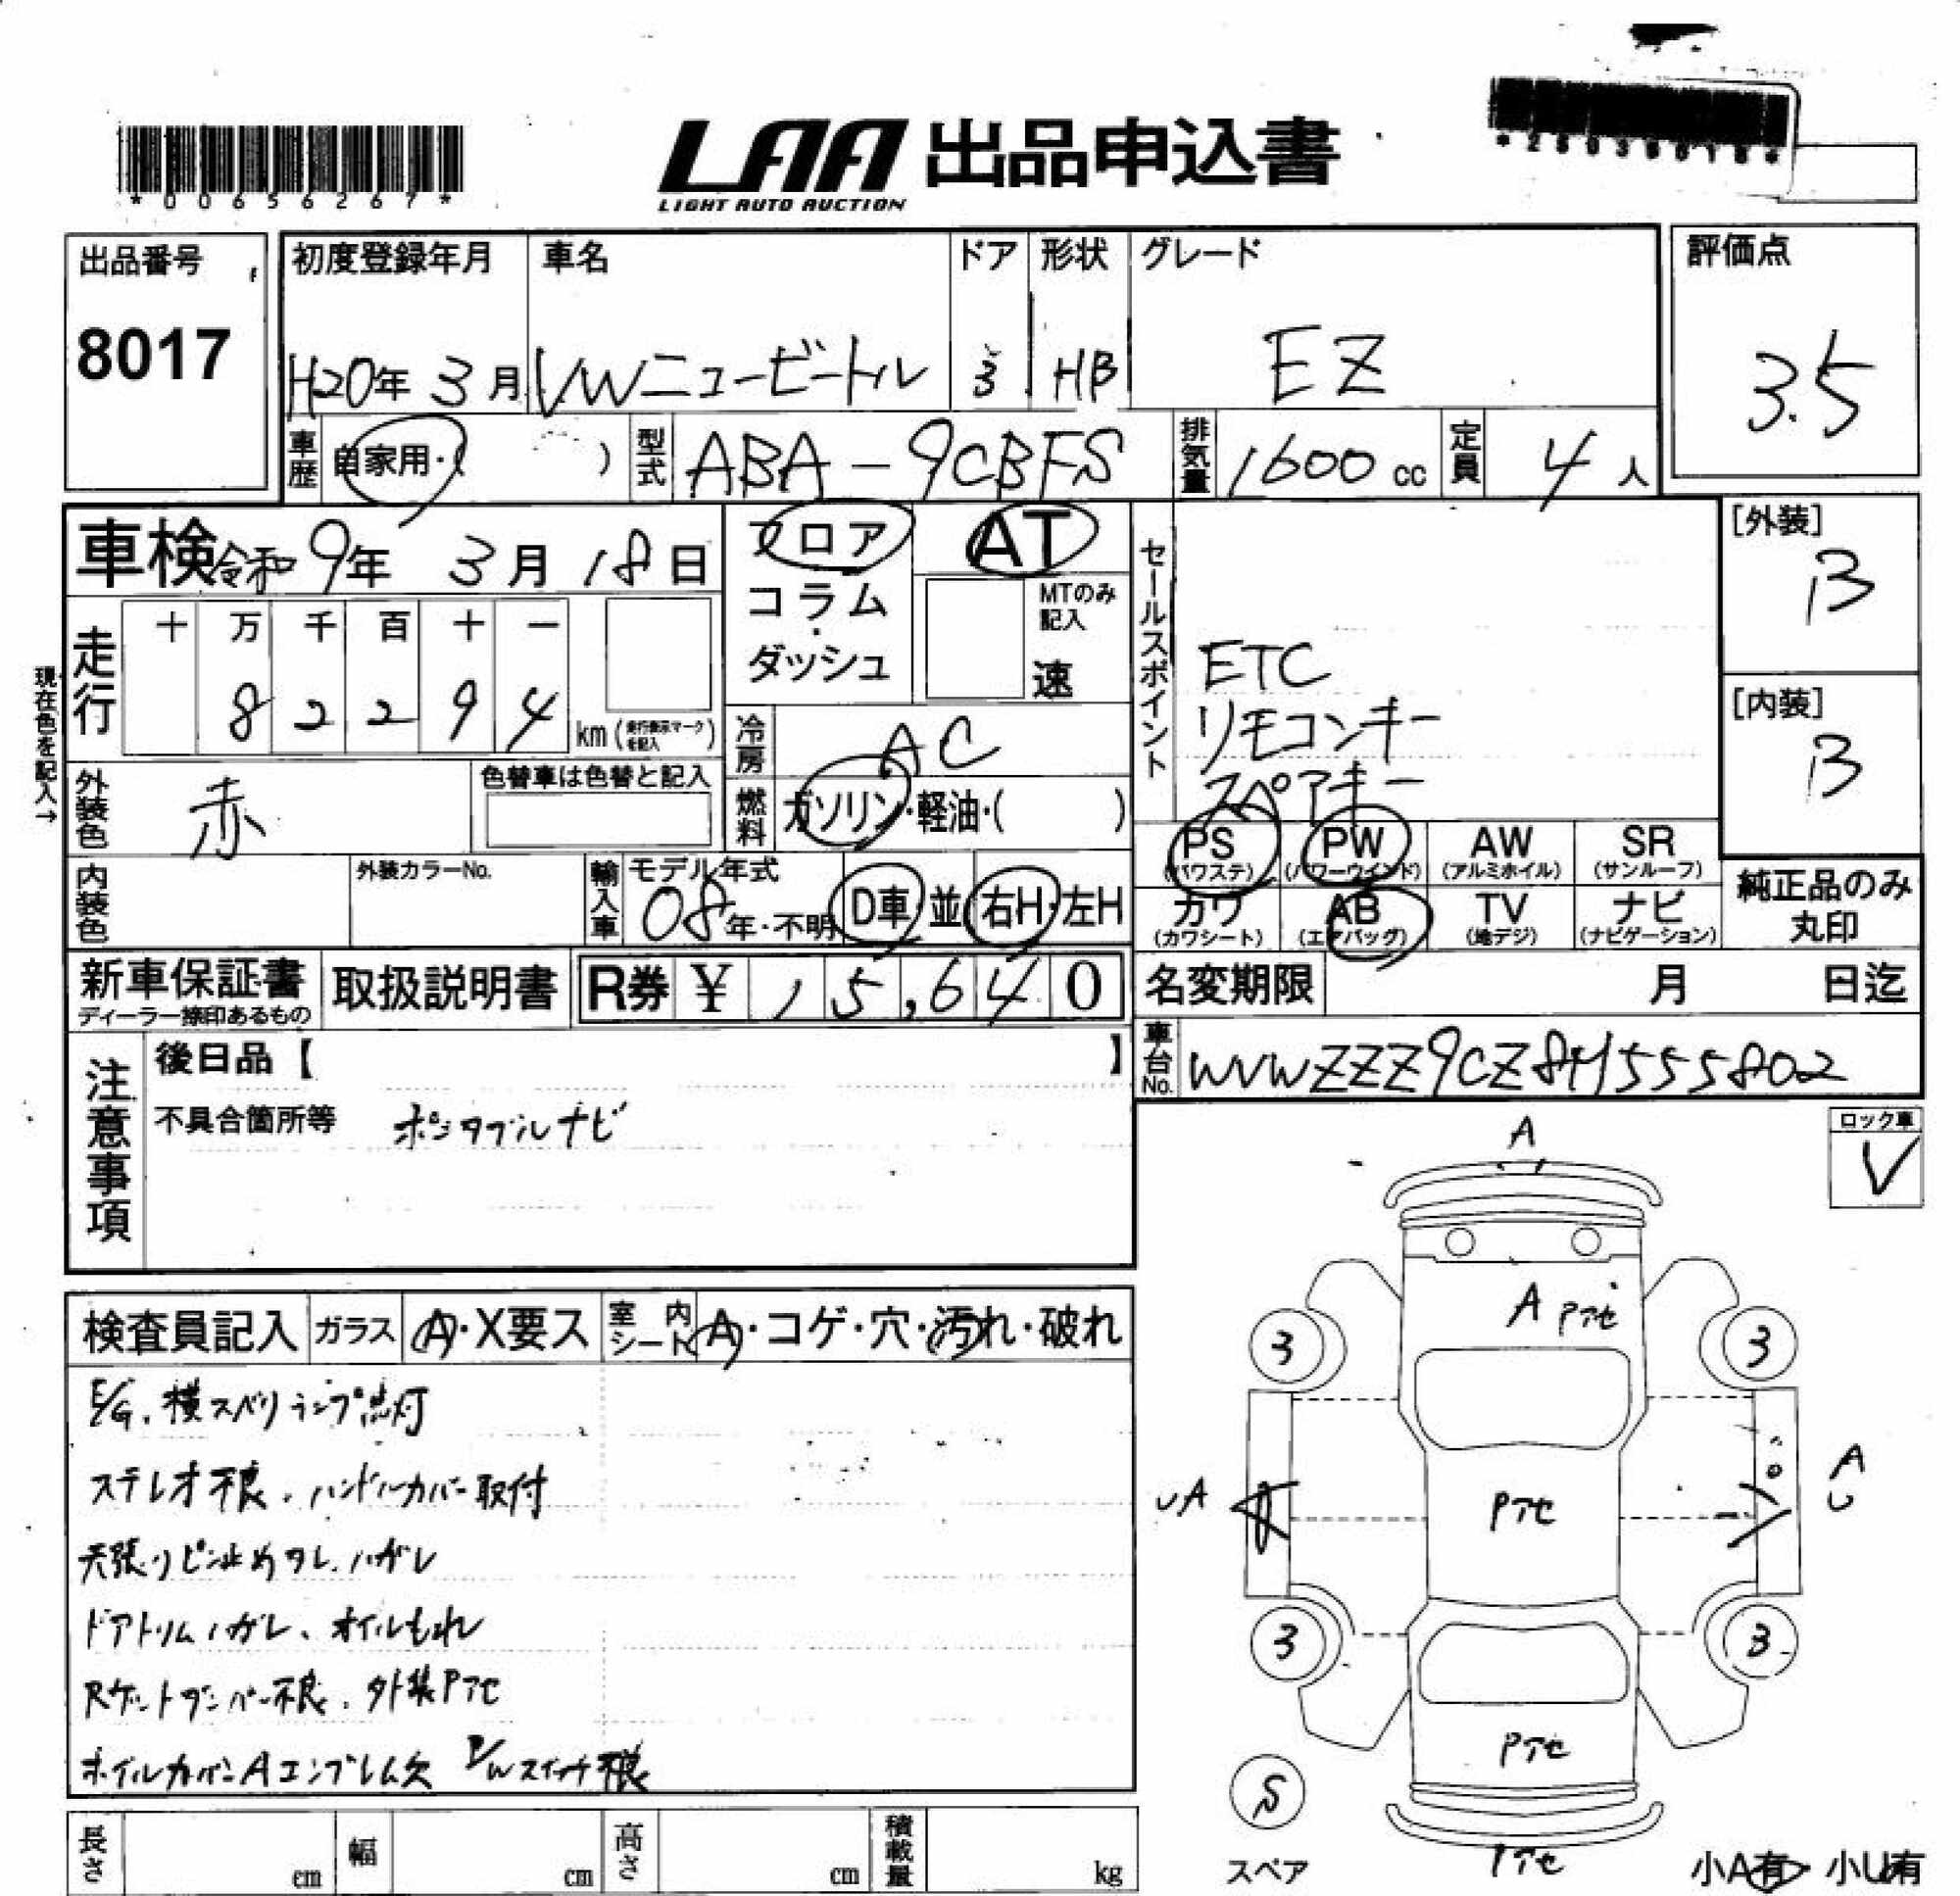 *00656267*
LAA 出品申込書
LIGHT AUTO AUCTION
出品番号
8017
初度登録年月
H20年 3月
車名
VWニュービートル
ドア
3
形状
HB
グレード
EZ
評価点
3.5
車歴
自家用・( )
型式
ABA-9CBFS
排気量
1600 cc
定員
4 人
車検 令和9年 3月 18日
フロア
コラム
・
ダッシュ
AT
MTのみ記入
速
セールスポイント
ETC
リモコンキー
スペアキー
[外装]
B
[内装]
B
現在色を記入→
走行
十 万 千 百 十 一
8 2 2 9 4
km (走行表示マークを記入)
冷房
AC
外装色
赤
色替車は色替と記入
燃料
ガソリン・軽油・( )
PS (パワステ)
PW (パワーウインド)
AW (アルミホイル)
SR (サンルーフ)
カワ (カワシート)
AB (エアバッグ)
TV (地デジ)
ナビ (ナビゲーション)
純正品のみ丸印
内装色
外装カラーNo.
輸入車
モデル年式
08年・不明
D車・並
右H・左H
新車保証書
ディーラー捺印あるもの
取扱説明書
R券 ¥ 15,640
名変期限 月 日迄
車台No.
WVWZZZ9CZ8M555802
注意事項
後日品【 】
不具合箇所等 ポータブルナビ
ロック車
V
検査員記入
ガラス
A・X要ス
室内シート
A・コゲ・穴・汚れ・破れ
E/G、横スベリランプ点灯
ステレオ不良、ハンドルカバー取付
天張りピン止めタレ、ハガレ
ドアトリムハガレ、オイルもれ
Rゲートダンパー不良、外装Pアセ
ホイルカバーAエンブレム欠 P/Wスイッチ不良
長さ cm
幅 cm
高さ cm
積載量 kg
A
A Pアセ
3
3
UA
Pアセ
A
U
3
3
Pアセ
S
スペア
Pアセ
小A有 小U有